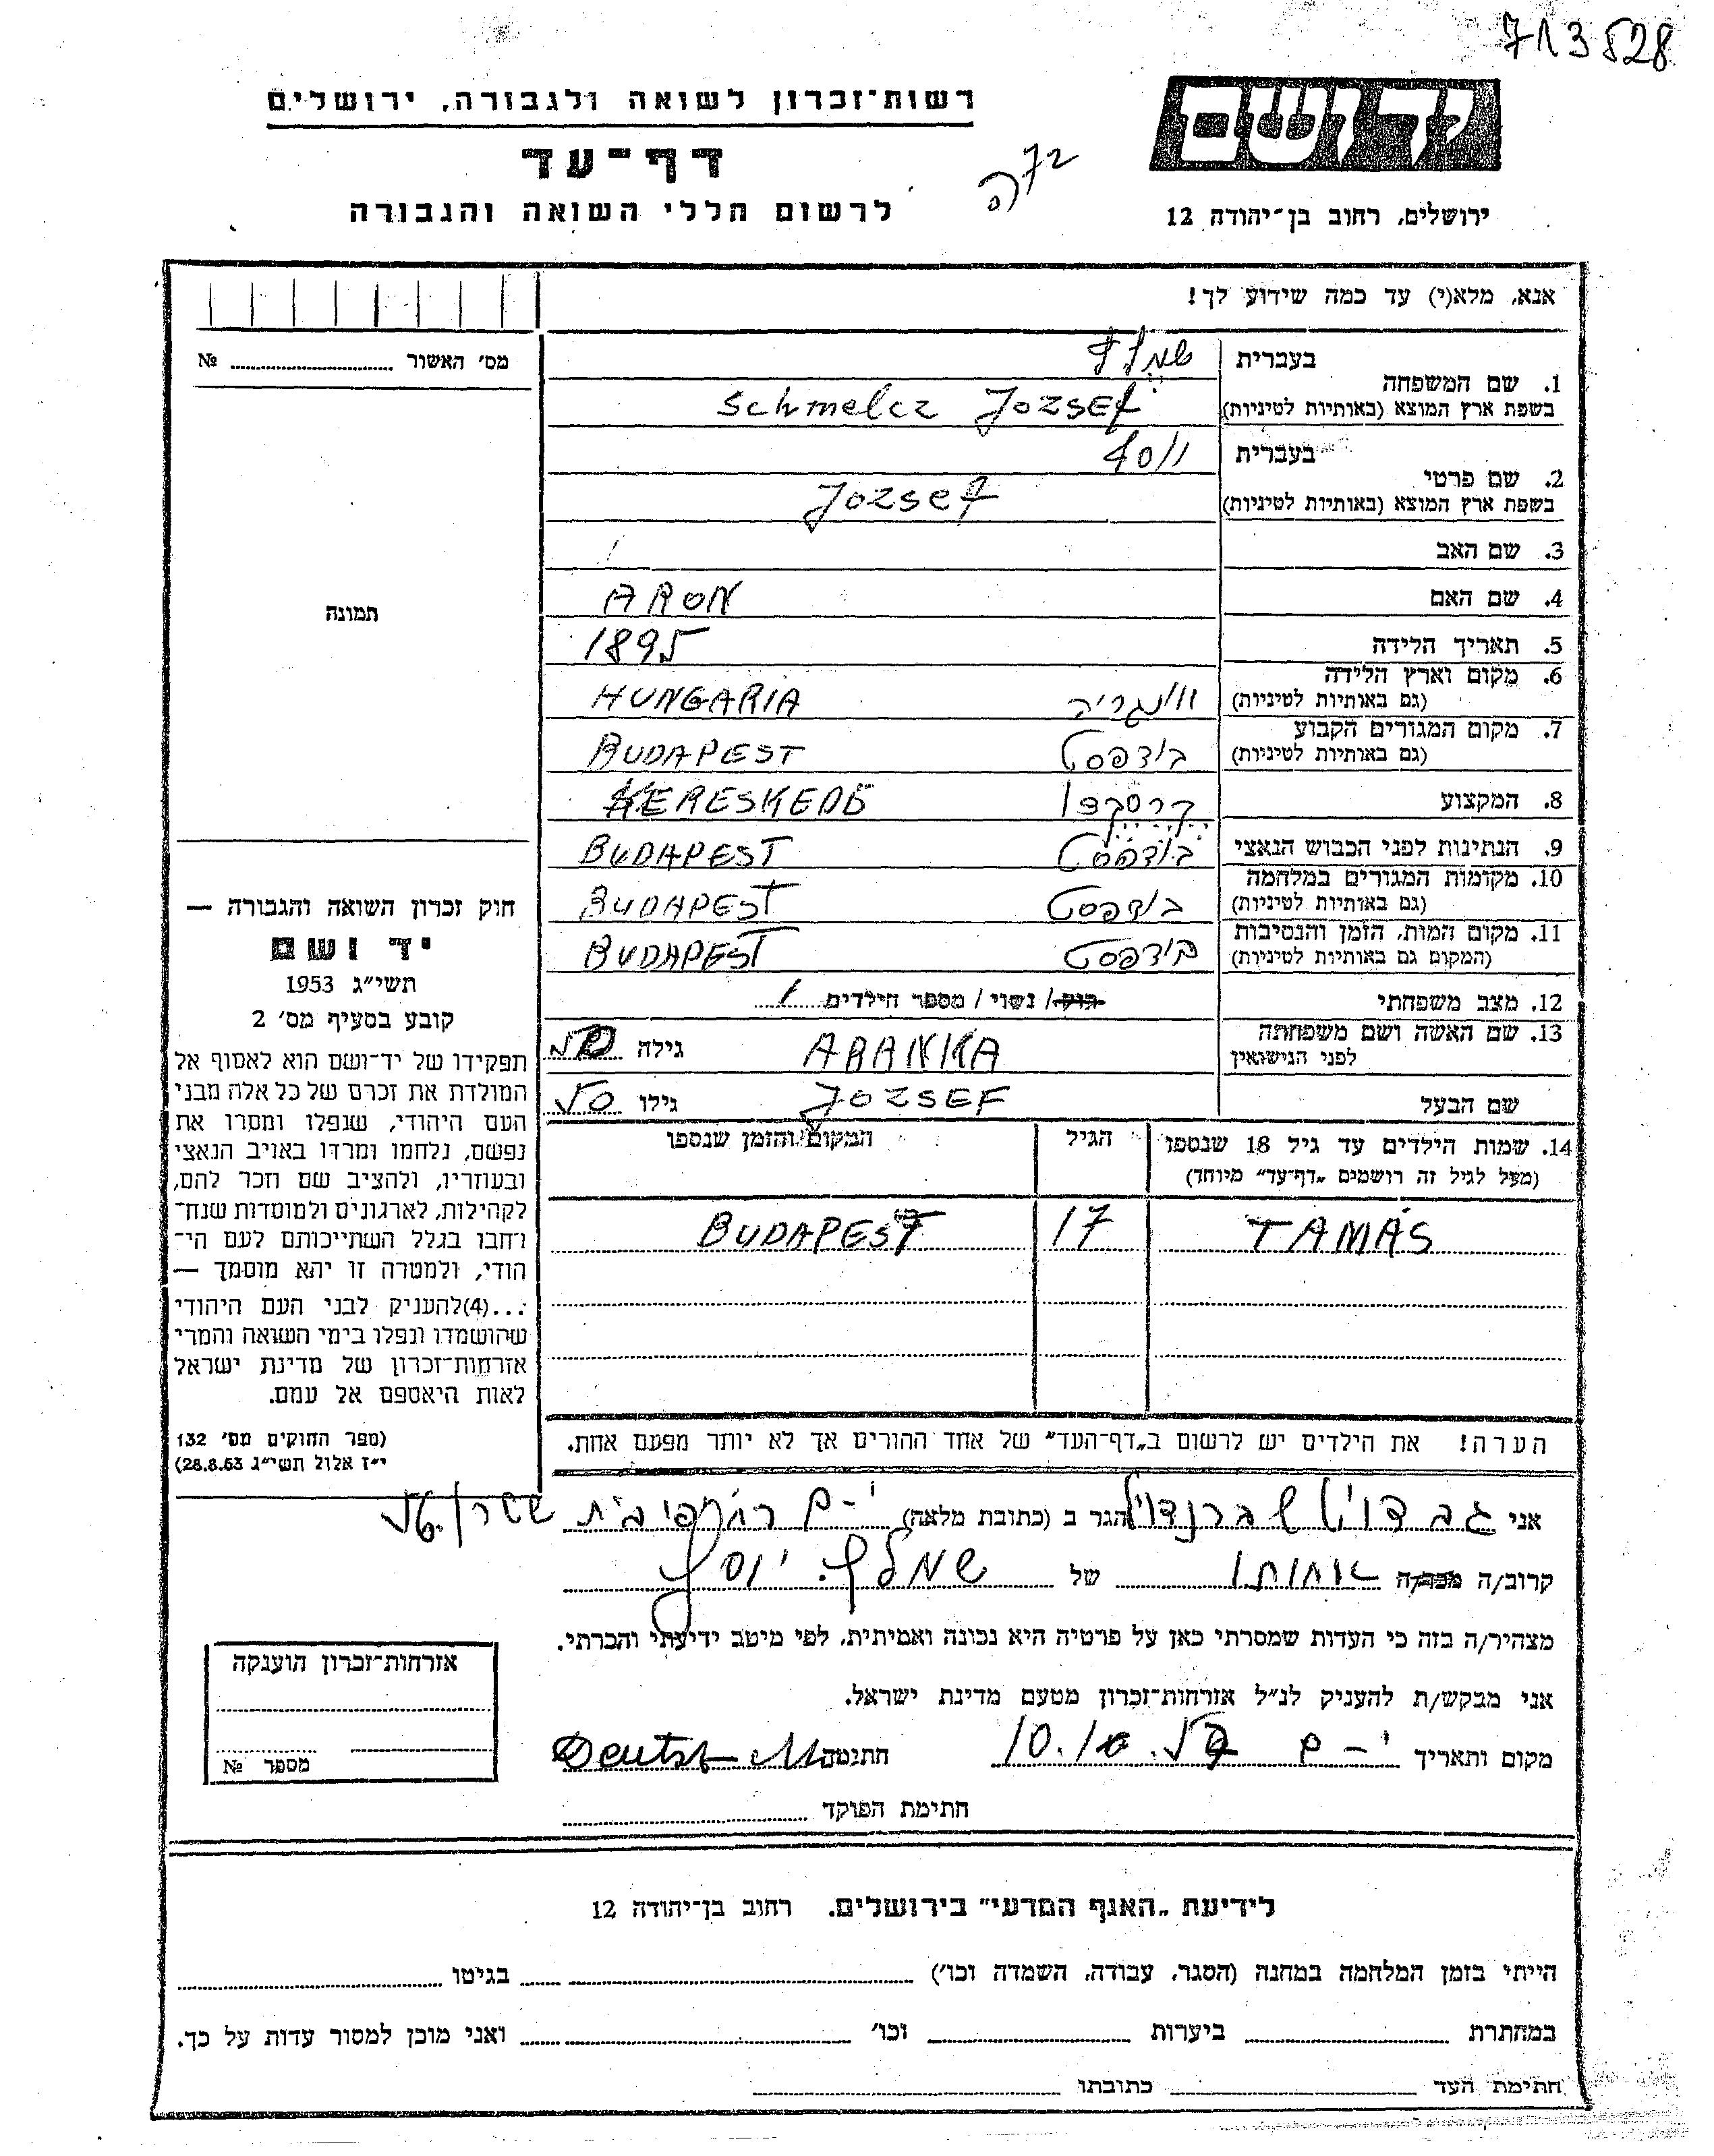 713528
רשות־זכרון לשואה ולגבורה, ירושלים
דף־עד
לרשום חללי השואה והגבורה
ידושם
ירושלים, רחוב בן־יהודה 12
אנא, מלא(י) עד כמה שידוע לך!
מס׳ האשור № 
1. שם המשפחה בעברית
בשפת ארץ המוצא (באותיות לטיניות) Schmelcz JOZSEf
2. שם פרטי בעברית
בשפת ארץ המוצא (באותיות לטיניות) Jozsef
3. שם האב
4. שם האם ARON
5. תאריך הלידה 1895
6. מקום וארץ הלידה
(גם באותיות לטיניות) הונגריה HUNGARIA
7. מקום המגורים הקבוע
(גם באותיות לטיניות) בודפסט BUDAPEST
8. המקצוע KERESKEDÖ
9. הנתינות לפני הכבוש הנאצי בודפסט BUDAPEST
10. מקומות המגורים במלחמה
(גם באותיות לטיניות) בודפסט BUDAPEST
11. מקום המות, הזמן והנסיבות
(המקום גם באותיות לטיניות) בודפסט BUDAPEST
12. מצב משפחתי רוק/ נשוי / מספר הילדים 1
13. שם האשה ושם משפחתה
לפני הנישואין ARANKA גילה
שם הבעל JOZSEF גילו 50
14. שמות הילדים עד גיל 18 שנספו
(מעל לגיל זה רושמים „דף־עד״ מיוחד)
הגיל
המקום והזמן שנספו
TAMÁS 17 BUDAPEST
הערה! את הילדים יש לרשום ב„דף־העד״ של אחד ההורים אך לא יותר מפעם אחת.
תמונה
חוק זכרון השואה והגבורה —
יד ושם
תשי״ג 1953
קובע בסעיף מס׳ 2
תפקידו של יד־ושם הוא לאסוף אל
המולדת את זכרם של כל אלה מבני
העם היהודי, שנפלו ומסרו את
נפשם, נלחמו ומרדו באויב הנאצי
ובעוזריו, ולהציב שם וזכר להם,
לקהילות, לארגונים ולמוסדות שנח־
רחבו בגלל השתייכותם לעם הי־
הודי, ולמטרה זו יהא מוסמך —
...(4)להעניק לבני העם היהודי
שהושמדו ונפלו בימי השואה והמרי
אזרחות־זכרון של מדינת ישראל
לאות היאספם אל עמם.
(ספר החוקים מס׳ 132
י״ז אלול תשי״ג 28.8.53)
אני הגר ב (כתובת מלאה) י-ם
קרוב/ה מכר/ה אחותו של יוסף
מצהיר/ה בזה כי העדות שמסרתי כאן על פרטיה היא נכונה ואמיתית, לפי מיטב ידיעתי והכרתי.
אני מבקש/ת להעניק לנ״ל אזרחות־זכרון מטעם מדינת ישראל.
מקום ותאריך י-ם חתימה Deutsch
חתימת הפוקד
אזרחות־זכרון הוענקה
מספר №
לידיעת „האגף המדעי״ בירושלים, רחוב בן־יהודה 12
הייתי בזמן המלחמה במחנה (הסגר, עבודה, השמדה וכו׳) בגיטו
במחתרת ביערות וכו׳ ואני מוכן למסור עדות על כך.
חתימת העד כתובתו